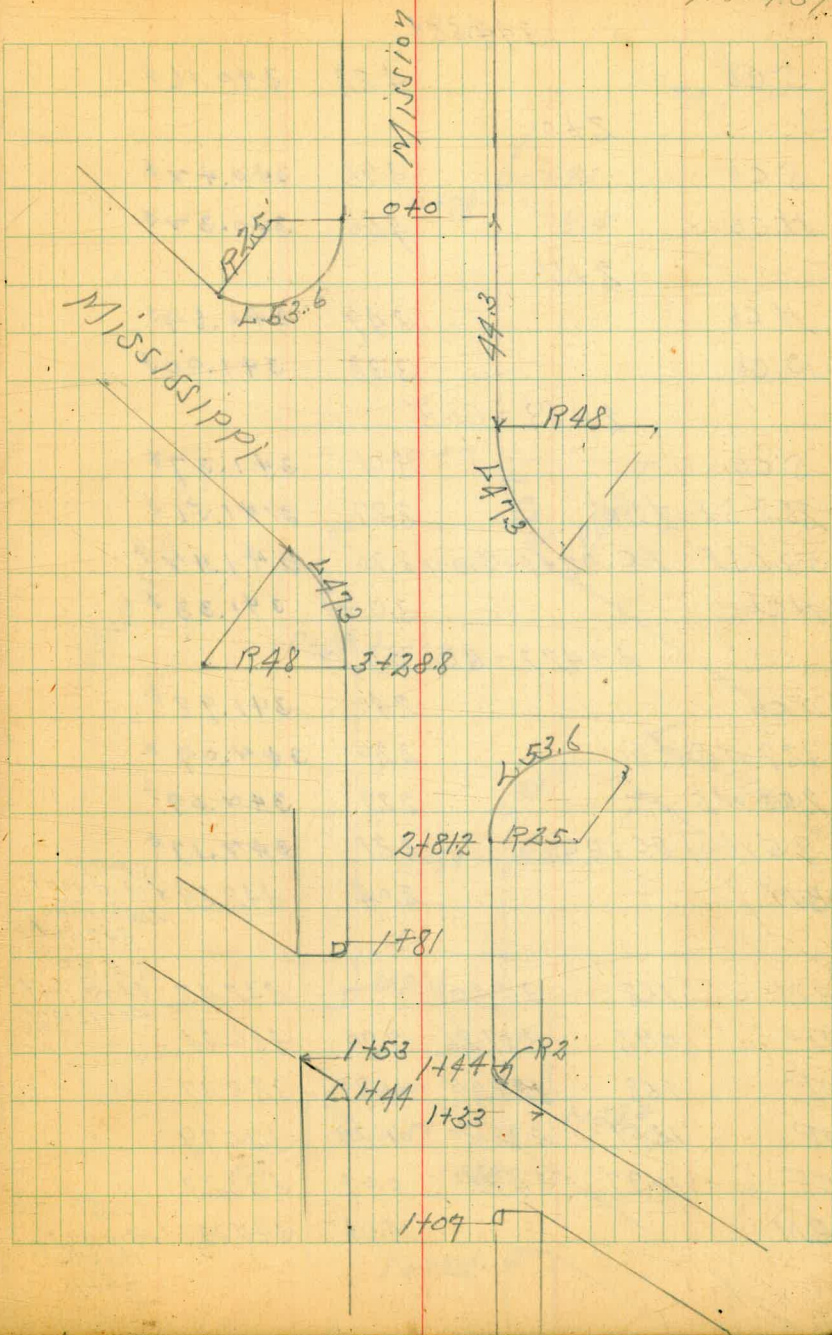 Mission
0+0
R25
L53.6
Mississippi
44.3
R48
L47.3
L47.3
R48
3+28.8
L 53.6
2+81.2
R25
1+81
1+53
1+44
R2
1+44
1+33
1+07